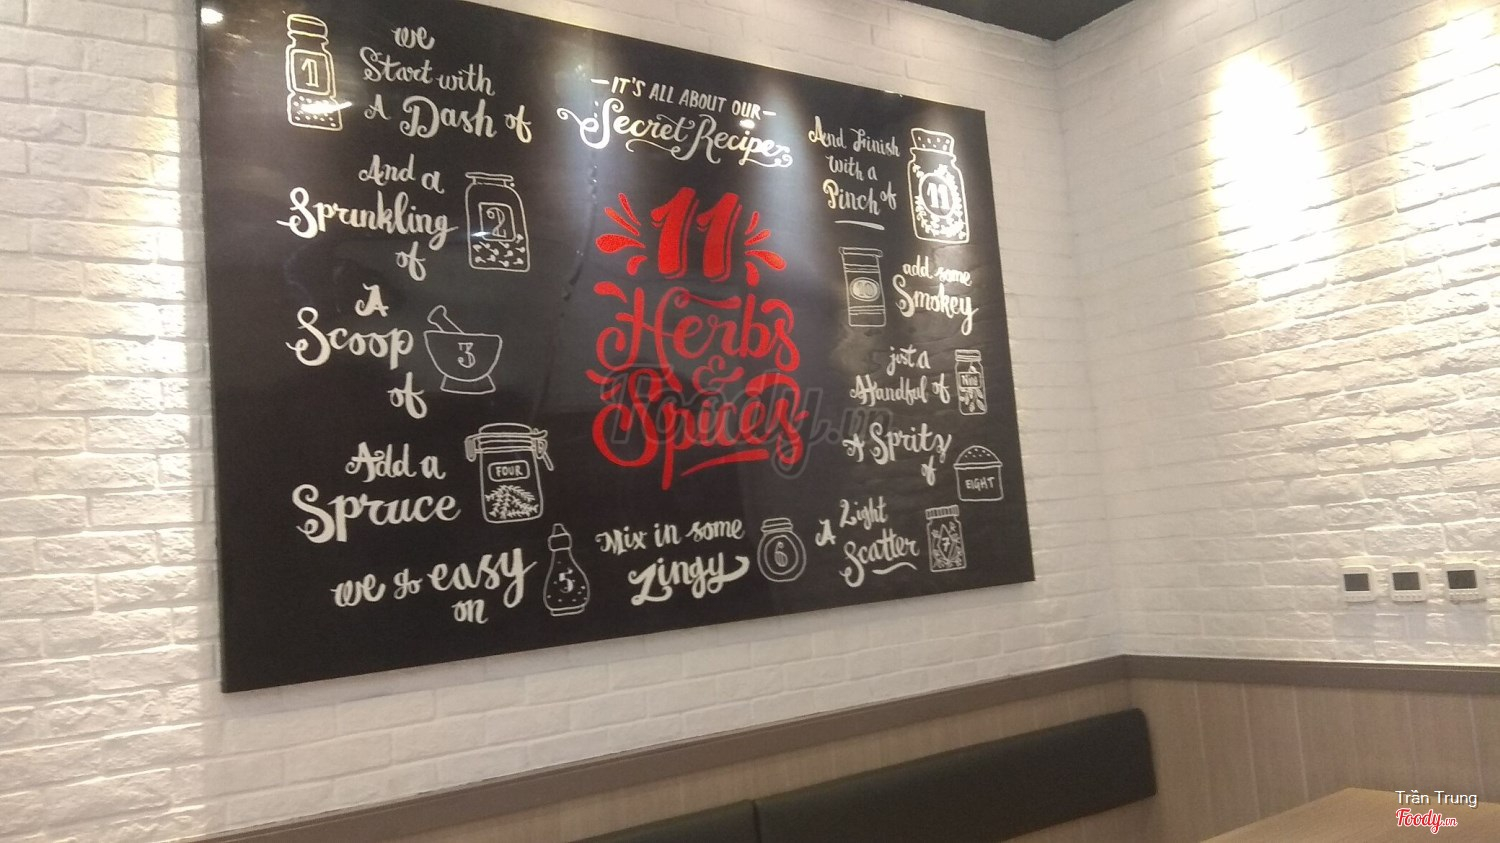 we
Start with
A Dash of
1
And a
Sprinkling
of
2
A
Scoop
of
3
Add a
Spruce
FOUR
we go easy
on
5
Mix in some
Zingy
6
A Light
Scatter
7
A Spritz
of
EIGHT
just a
Handful of
add some
Smokey
And Finish
with a
Pinch of
11
—IT'S ALL ABOUT OUR—
Secret Recipe
11
Herbs
&
Spices
Foody.vn
Trần Trung
Foody.vn